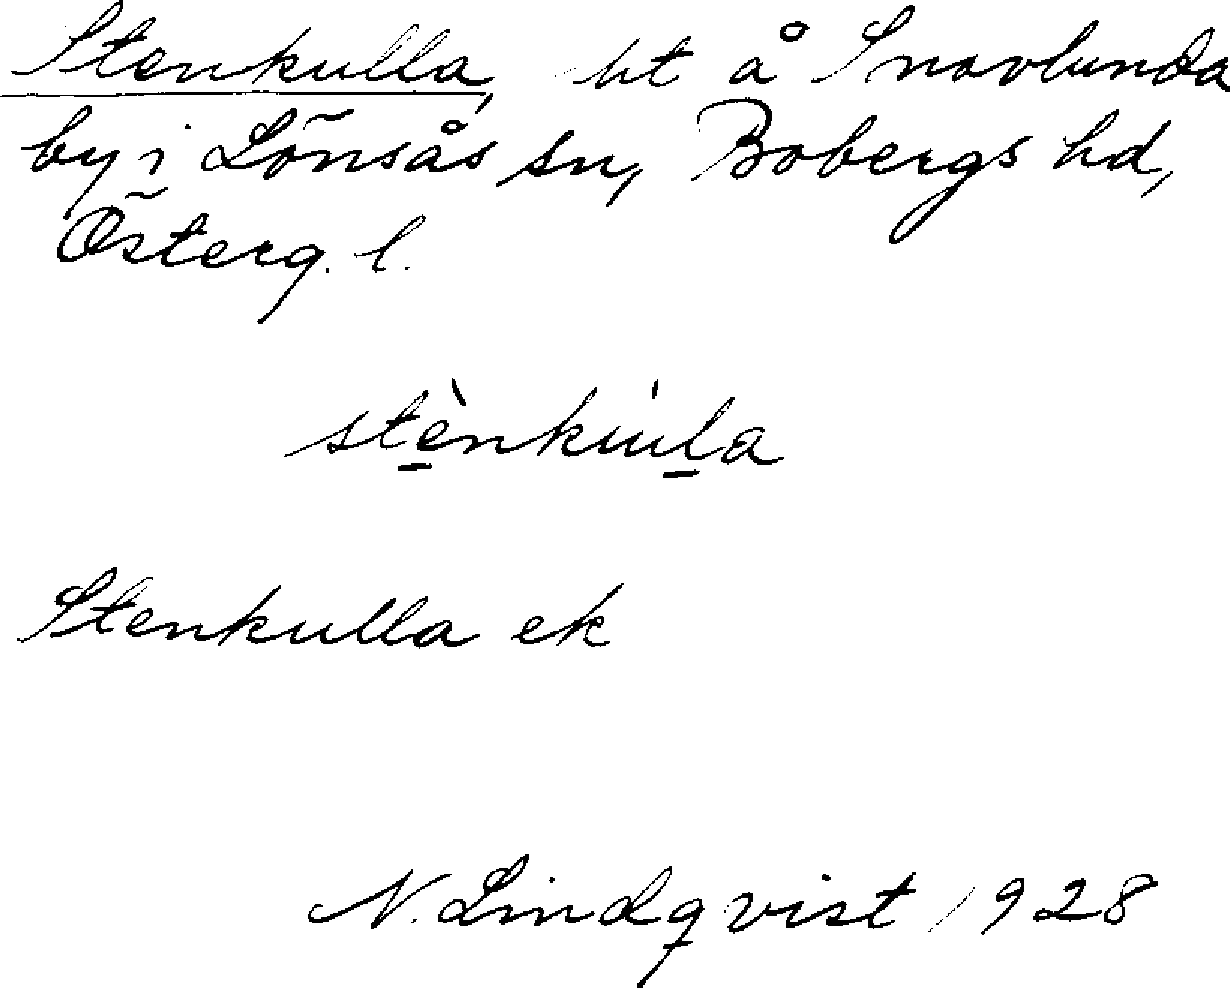 Stenkulla, ht å Snavlunda
by i Lönsås sn, Bobergs hd,
Österg. l.
stè̠nkùl̠a
Stenkulla ek
N. Lindqvist 1928